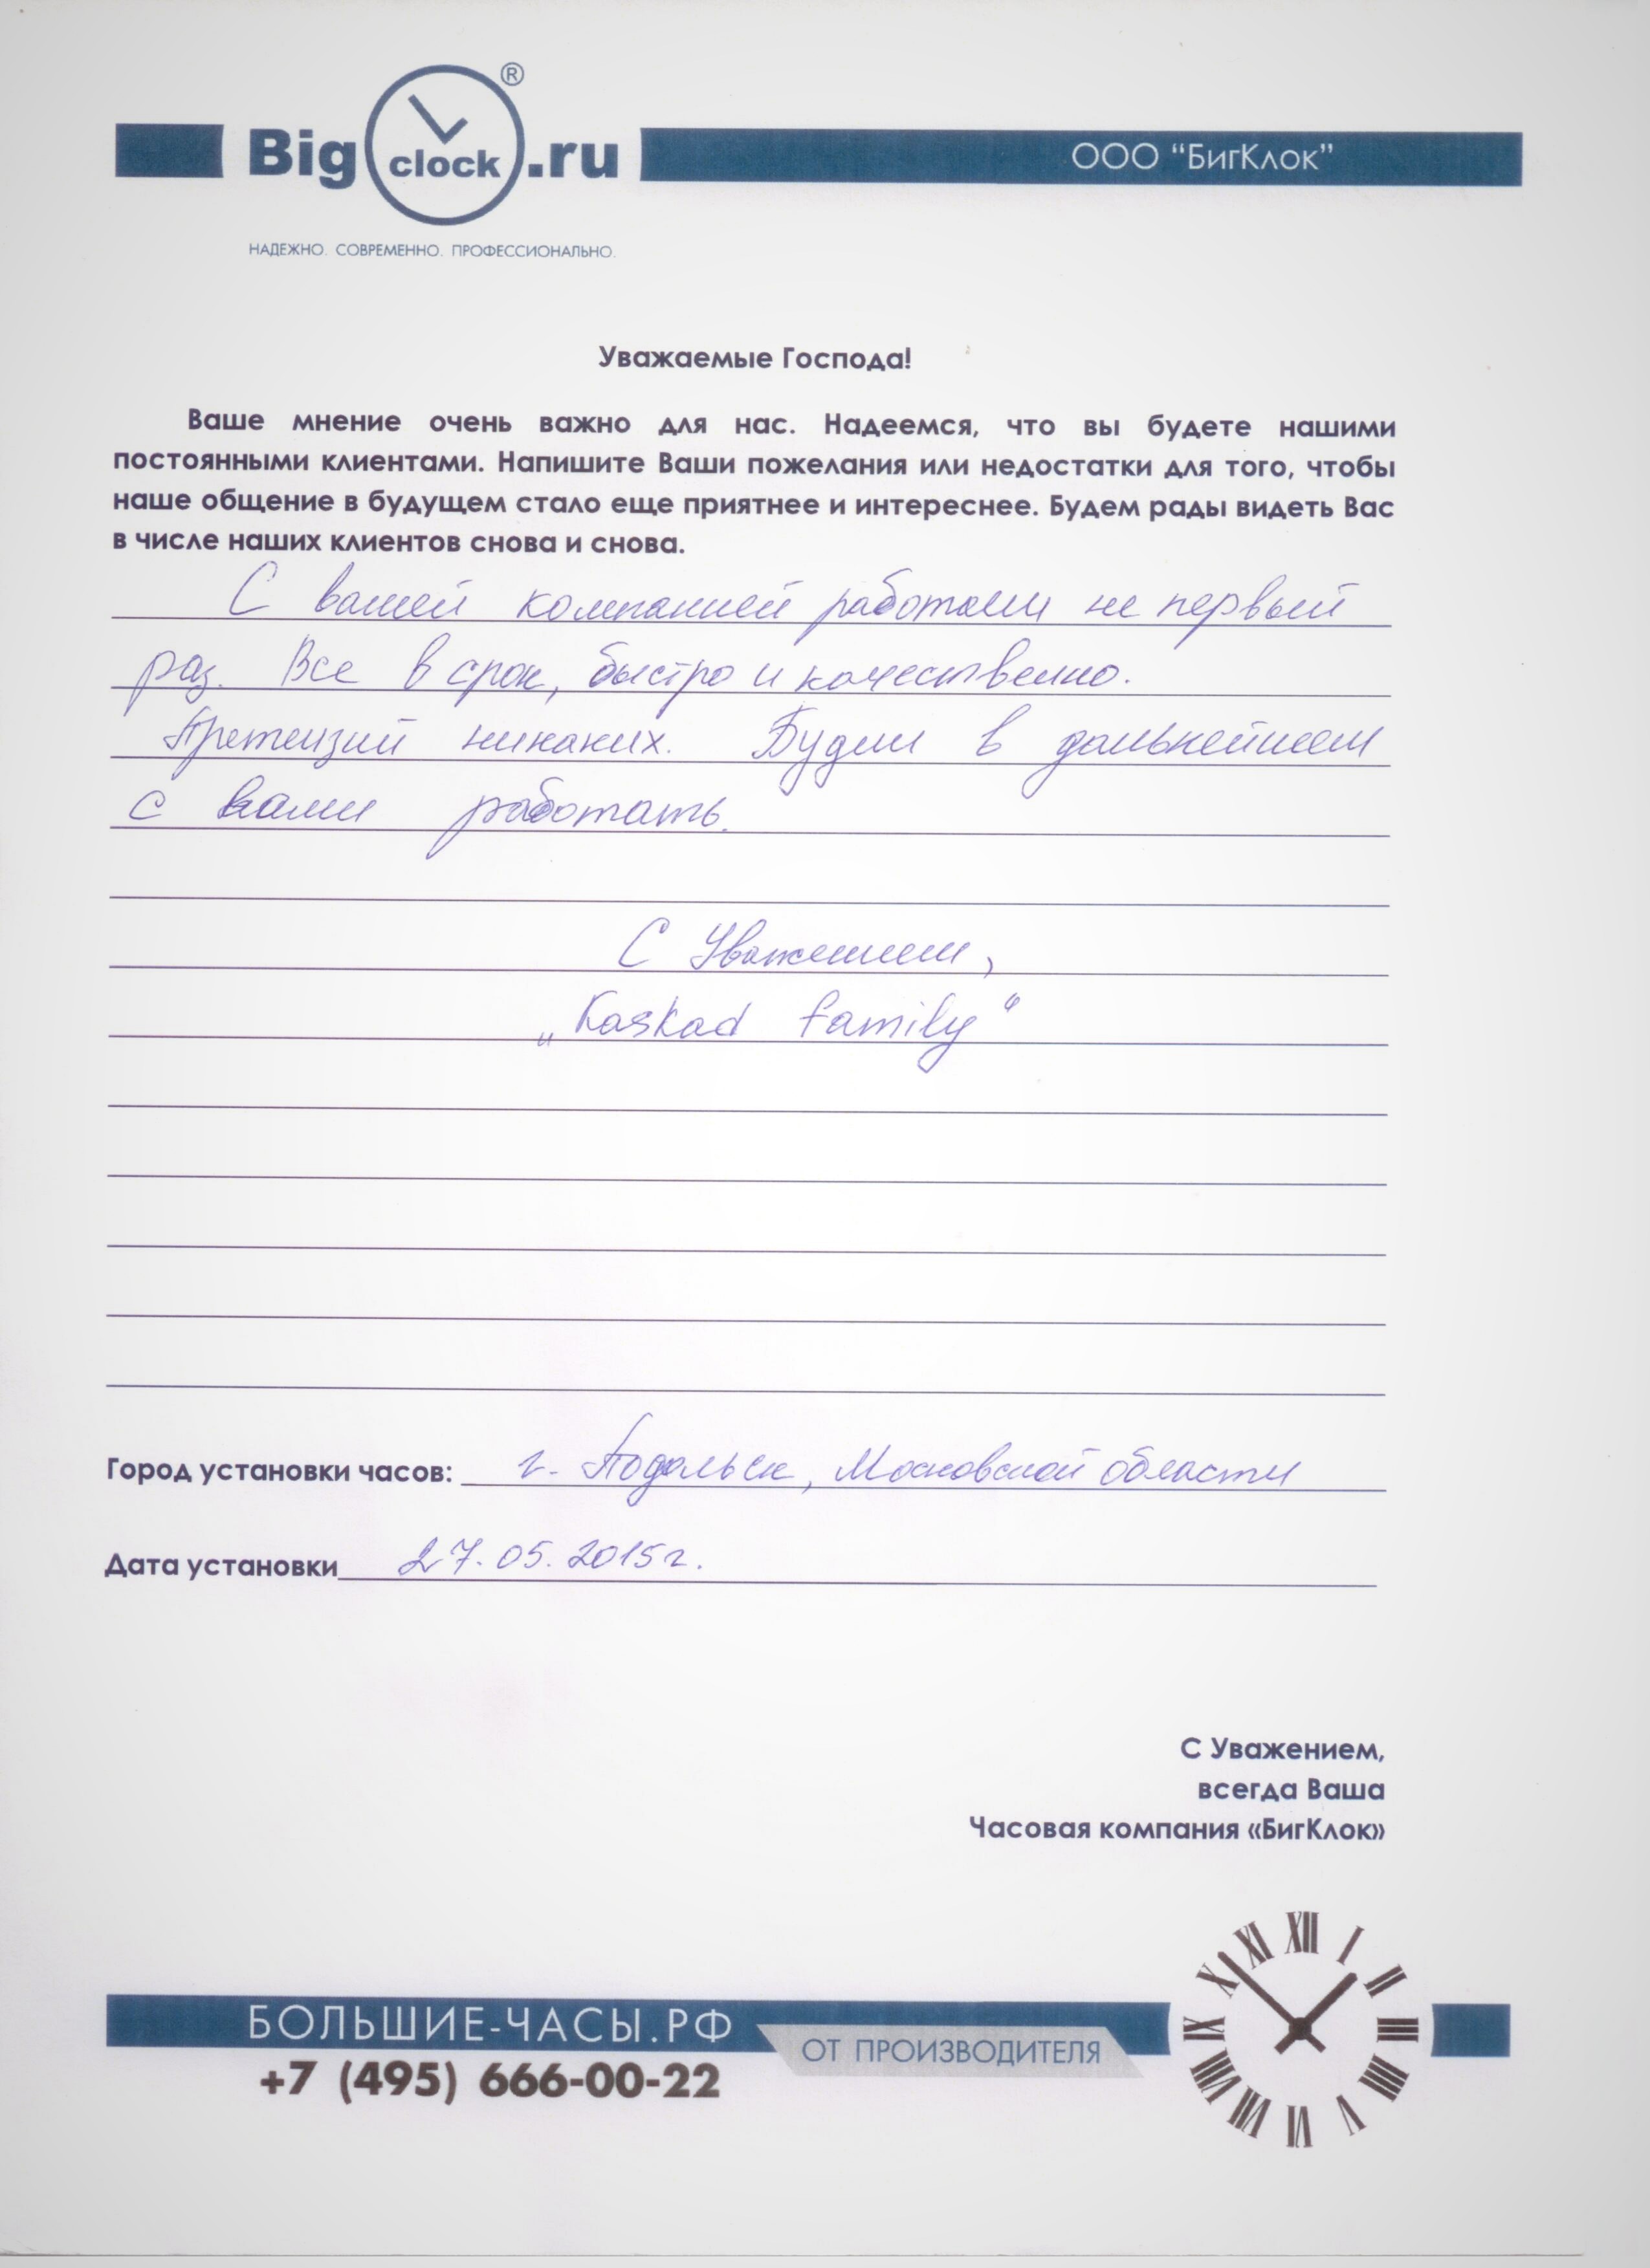 Big clock.ru ®
ООО “БигКлок”
НАДЕЖНО. СОВРЕМЕННО. ПРОФЕССИОНАЛЬНО.
Уважаемые Господа!
Ваше мнение очень важно для нас. Надеемся, что вы будете нашими
постоянными клиентами. Напишите Ваши пожелания или недостатки для того, чтобы
наше общение в будущем стало еще приятнее и интереснее. Будем рады видеть Вас
в числе наших клиентов снова и снова.
С вашей компанией работаем не первый
раз. Все в срок, быстро и качественно.
Претензий никаких. Будем в дальнейшем
с вами работать.
С Уважением,
„Kaskad family“
Город установки часов: г. Подольск, Московской области
Дата установки 27.05.2015г.
С Уважением,
всегда Ваша
Часовая компания «БигКлок»
БОЛЬШИЕ-ЧАСЫ.РФ
ОТ ПРОИЗВОДИТЕЛЯ
+7 (495) 666-00-22
XII I II III IIII V VI VII VIII IX X XI